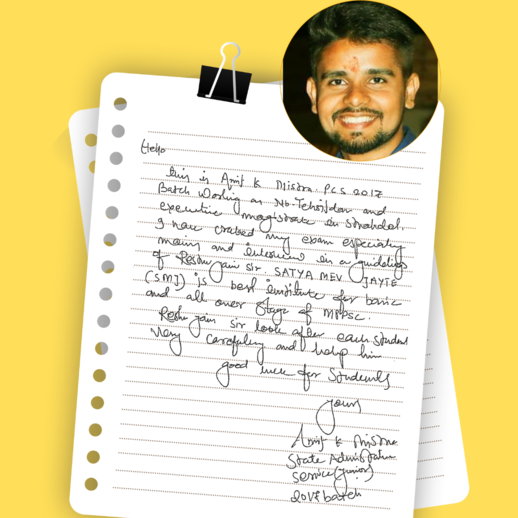 Hello
this is Amit K Mishra. PCS 2017
Batch Working as Nb-Tehsildar and
executive magistrate in Shahdol.
I have cracked my exam especially
mains and interview in a guidings
of Resham Jain Sir. SATYA MEV JAYTE
(SMJ) is best institute for basic
and all over stage of MPPSC.
Jain sir look after each student
very carefully and help him
good luck for Students
Yours
Amit K Mishra
State Administrative
Service (junior)
2017 batch